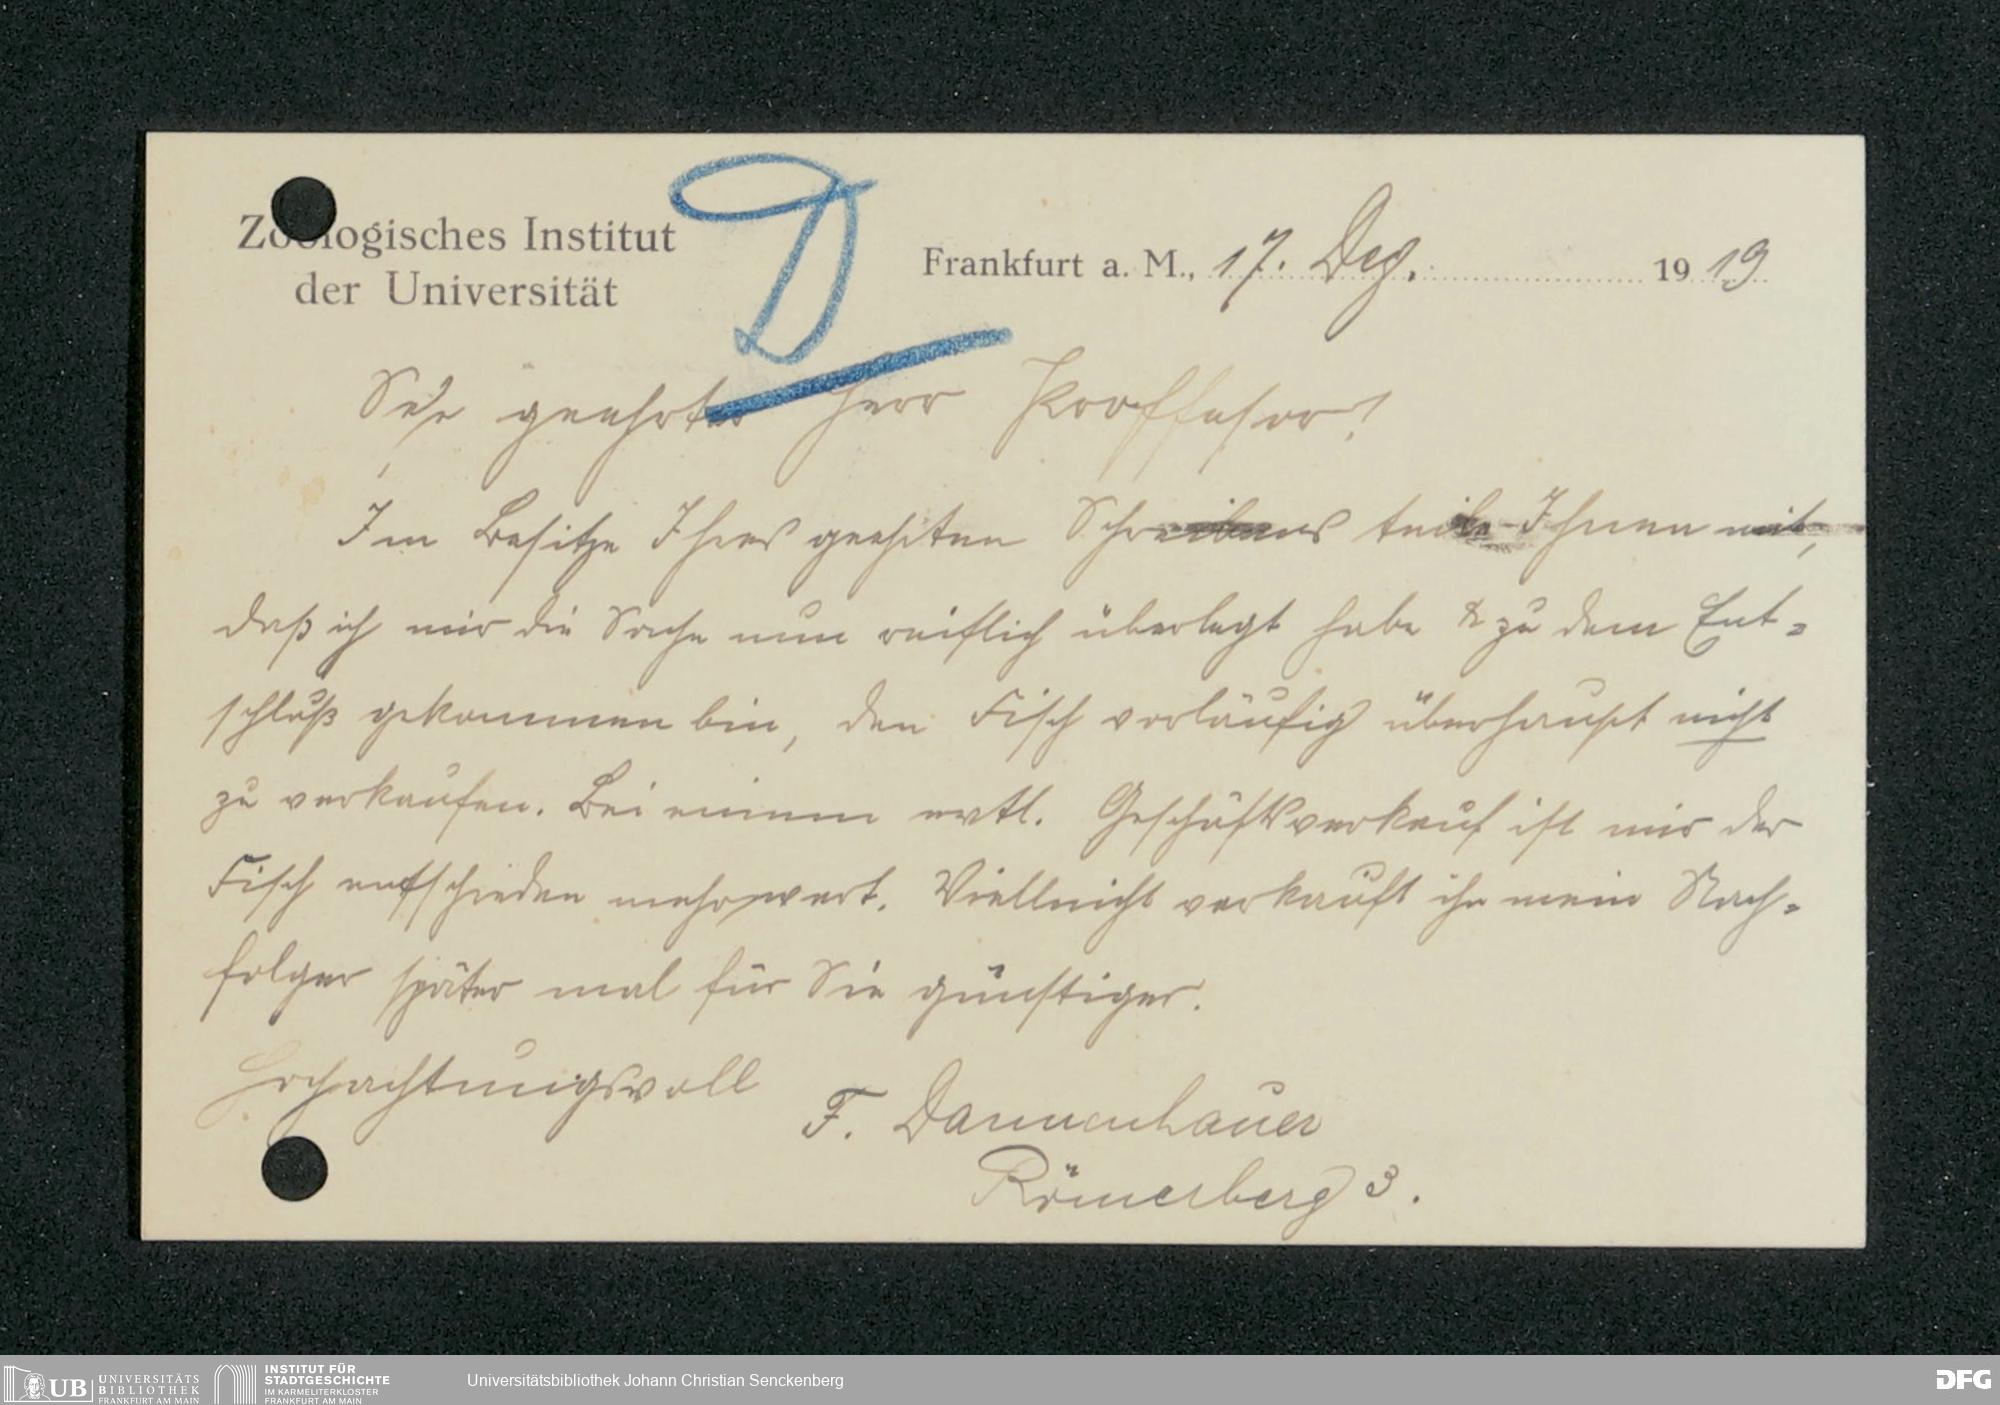 D
Zoologisches Institut
der Universität
Frankfurt a. M., 17. Dez. 1919
Sehr geehrter Herr Proffesor!
Im Besitze Ihres geehrten Schreibens teile Ihnen mit,
daß ich mir die Sache nun reiflich überlegt habe & zu dem Ent-
schluß gekommen bin, den Fisch vorläufig überhaupt nicht
zu verkaufen. Bei einem evtl. Geschäftsverkauf ist mir der
Fisch entschieden mehr wert. Vielleicht verkauft ihn mein Nach-
folger später mal für Sie günstiger.
Hochachtungsvoll
F. Dannenhauer
Römerberg 3.
UB UNIVERSITÄTS
BIBLIOTHEK
FRANKFURT AM MAIN
INSTITUT FÜR
STADTGESCHICHTE
IM KARMELITERKLOSTER
FRANKFURT AM MAIN
Universitätsbibliothek Johann Christian Senckenberg
DFG